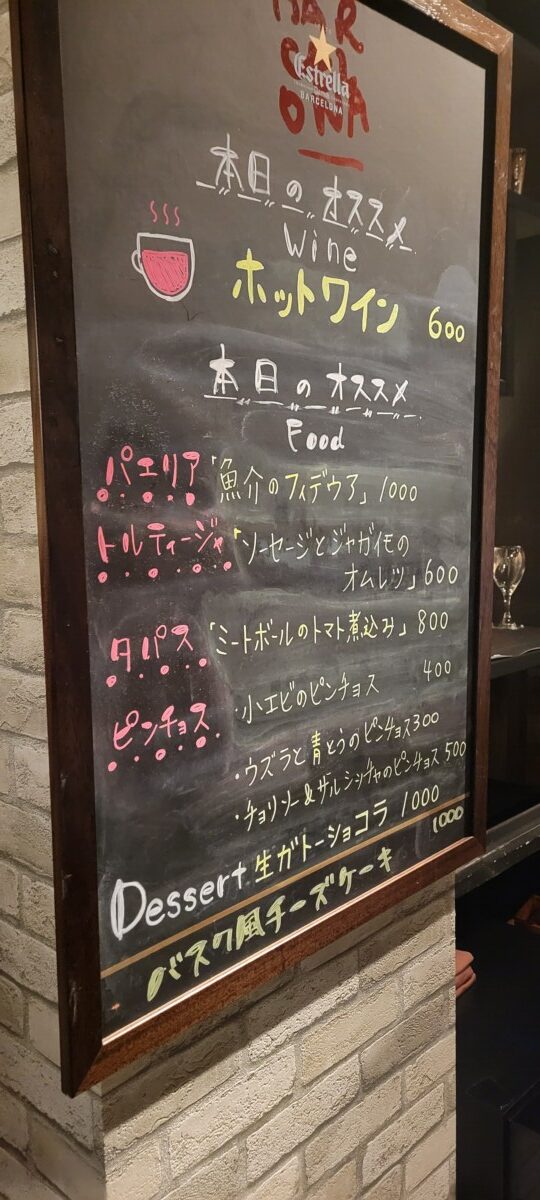 BAR
CEL
ONA
Estrella
BARCELONA
本日のオススメ
Wine
ホットワイン 600
本日のオススメ
Food
パエリア「魚介のフィデウア」1000
トルティージャ「ソーセージとジャガイモの
オムレツ」600
タパス「ミートボールのトマト煮込み」800
ピンチョス ・小エビのピンチョス 400
・ウズラと青とうのピンチョス300
・チョリソー&ザルシッチャのピンチョス 500
Dessert 生ガトーショコラ 1000
バスク風チーズケーキ 1000